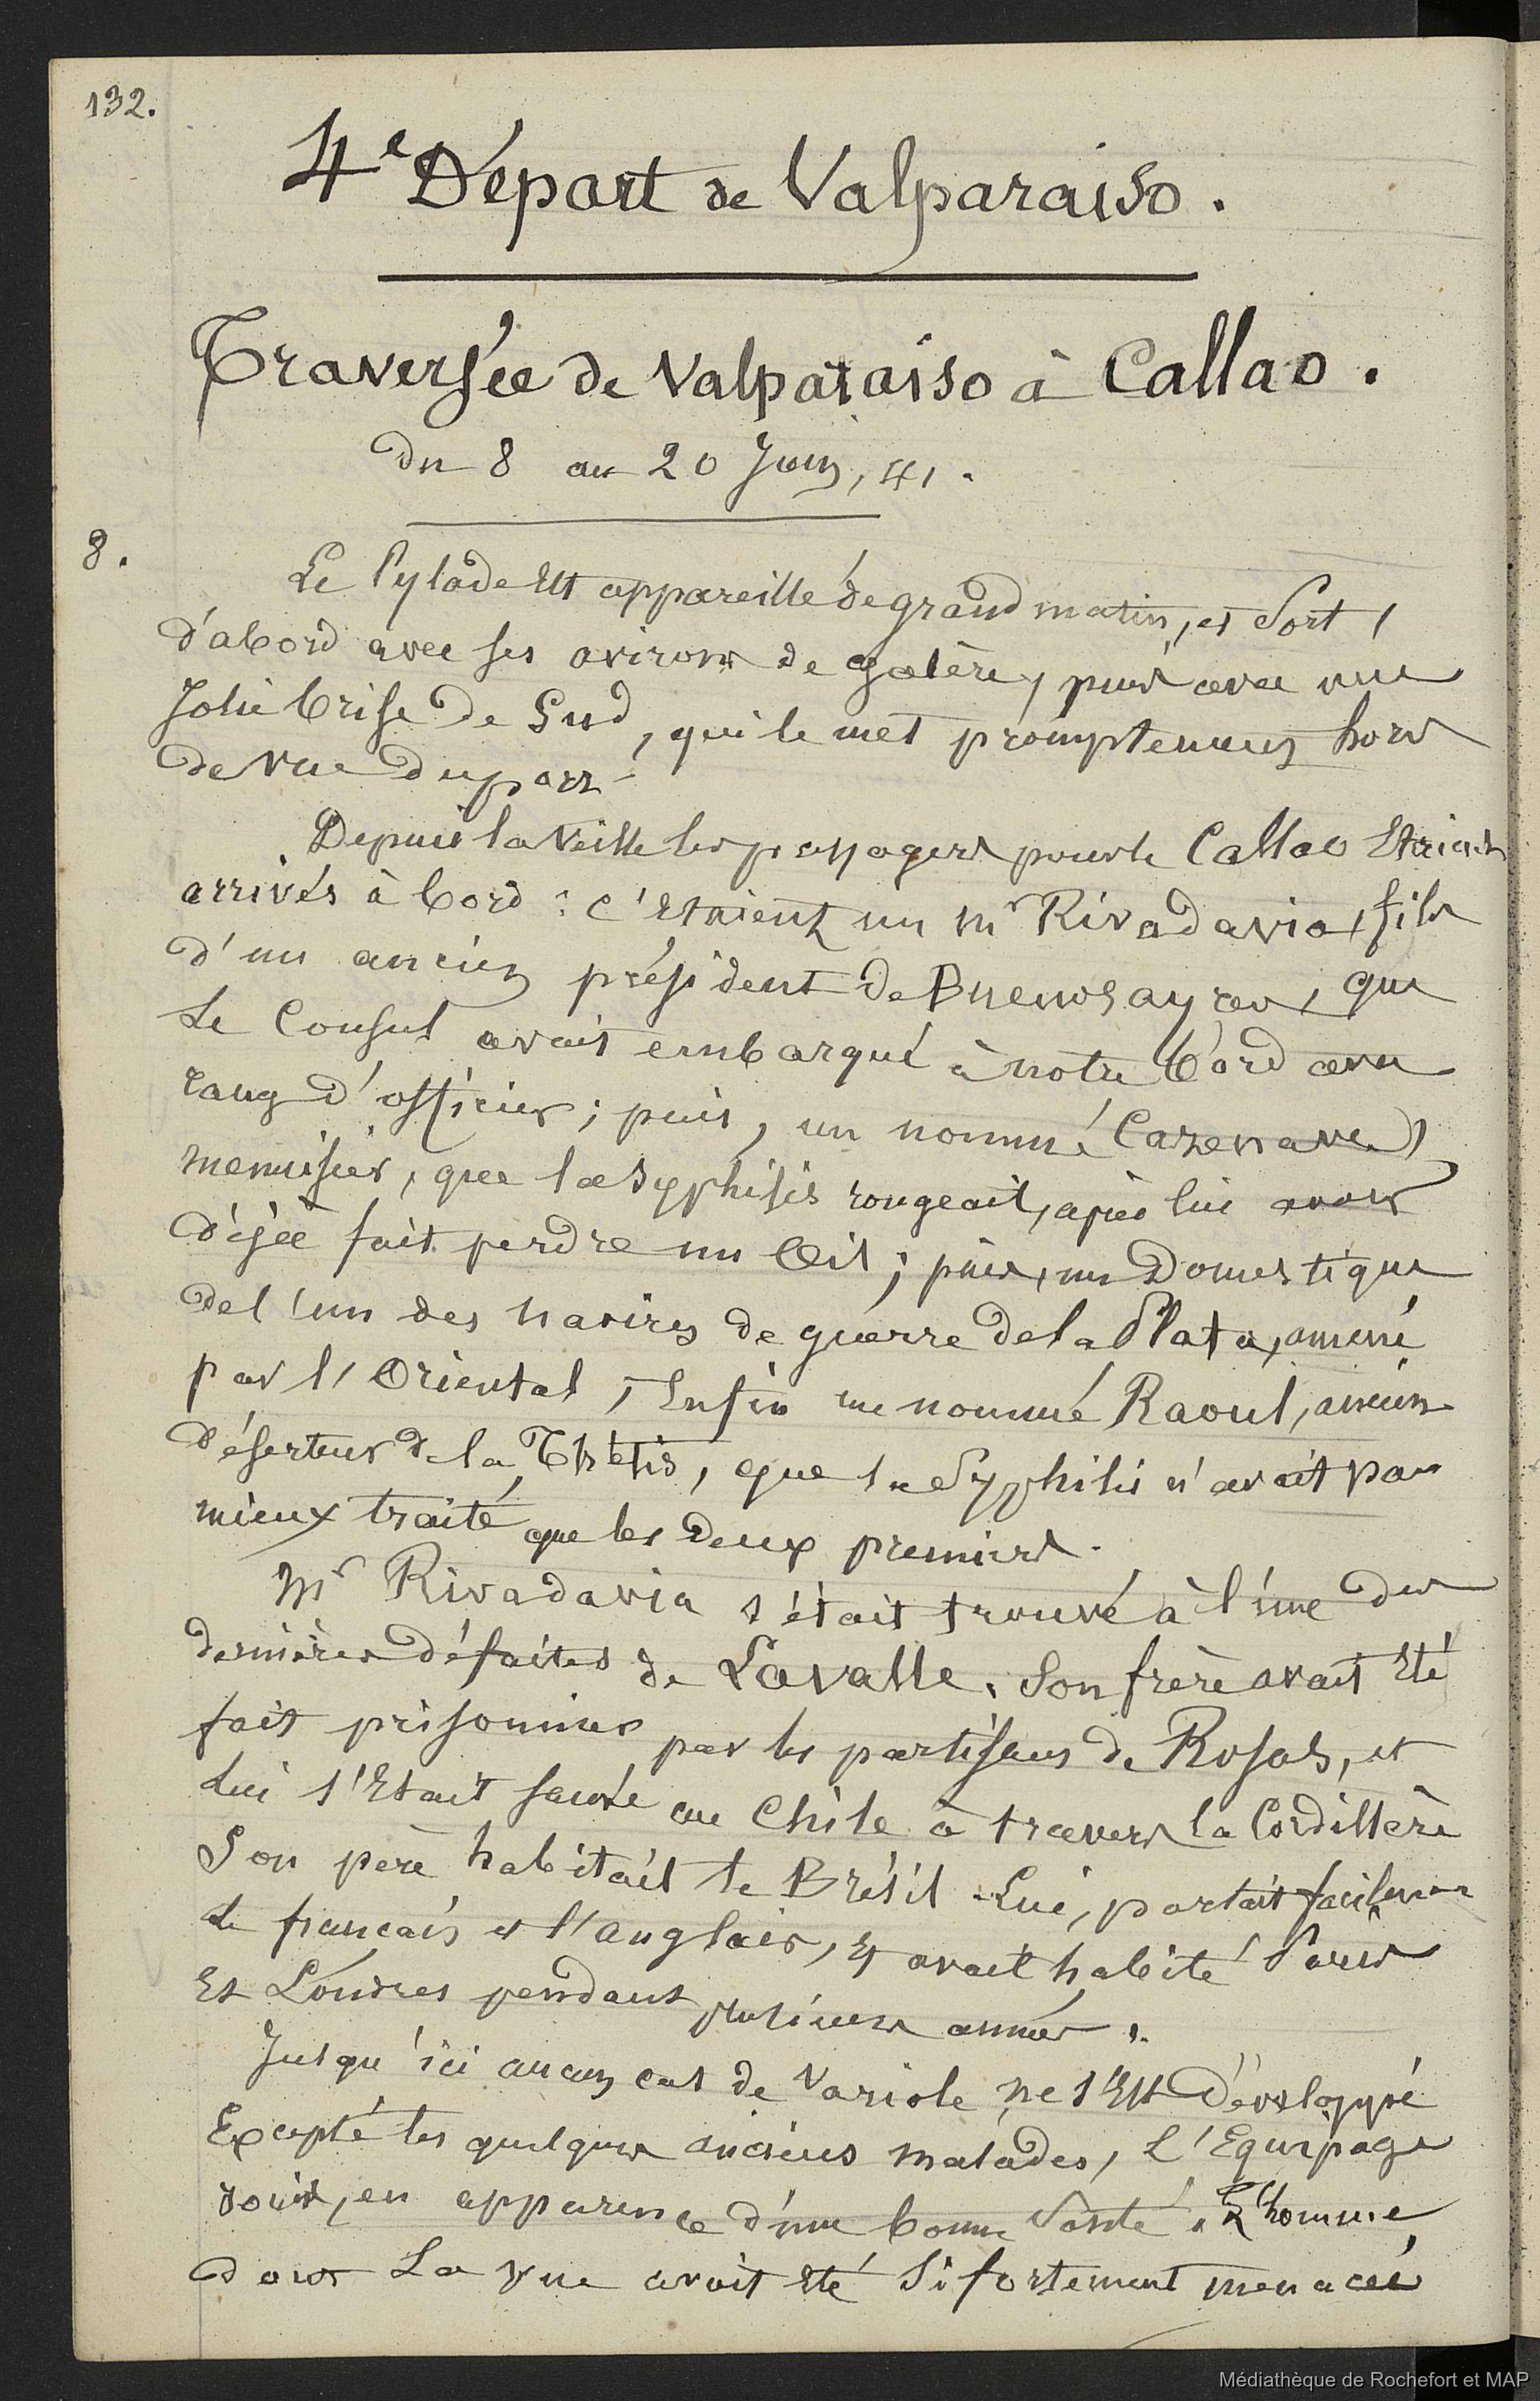 132.
4e Départ de Valparaiso.
Traversée de Valparaiso à Callao.
du 8 au 20 Juin, 41.
8.
Le Pylade est appareillé de grand matin, et sort,
d'abord avec ses avirons de galère, puis avec une
Jolie brise de Sud, qui le met promptement hors
de vue du port.
Depuis la veille les passagers pour le Callao étaient
arrivés à bord : c'étaient un Mr Rivadavia, fils
d'un ancien président de Buenosayres, que
le Consul avait embarqué à notre bord avec
rang d'officier ; puis, un nommé Cazenave,
menuisier, que la syphilis rongeait, après lui avoir
déjà fait perdre un œil ; puis, un Domestique
de l'un des navires de guerre de la Plata, amené
par l'Oriental, Enfin un nommé Raoul, ancien
déserteur de la Thétis, que la Syphilis n'avait pas
mieux traité que les deux premiers.
Mr Rivadavia s'était trouvé à l'une des
dernières défaites de Lavalle. Son frère avait été
fait prisonnier par les partisans de Rosas, et
lui s'était sauvé au Chile à travers la Cordillère
Son père habitait le Brésil. Lui, parlait facilement
le français et l'anglais, et avait habité Paris
Et Londres pendant plusieurs années.
Jusqu'ici aucun cas de Variole ne s'est développé
Excepté les quelques anciens malades, L'Equipage
jouit, en apparence d'une bonne Santé. L'homme
dont La vue avait été si fortement menacée
Médiathèque de Rochefort et MAP